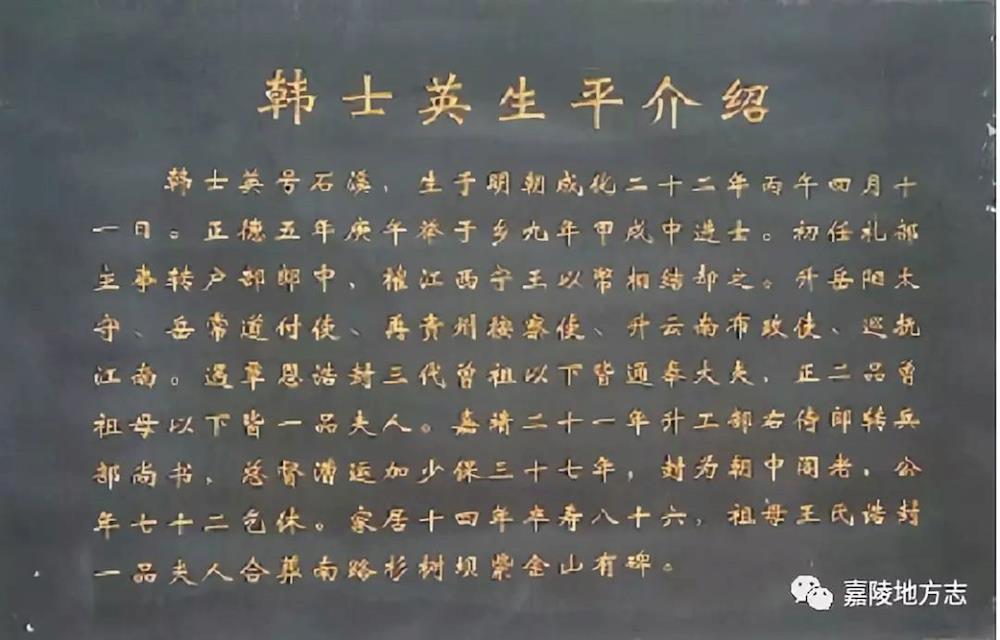 韩士英生平介绍
韩士英号石溪，生于明朝成化二十二年丙午四月十
一日。正德五年庚午举于乡九年甲戌中进士。初任礼部
主事转户部郎中，榷江西宁王以币相结却之。升岳阳太
守、岳常道付使、再贵州按察使、升云南布政使、巡抚
江南。遇覃恩诰封三代曾祖以下皆通奉大夫，正二品曾
祖母以下皆一品夫人。嘉靖二十一年升工部右侍郎转兵
部尚书，总督漕运加少保三十七年，封为朝中阁老，公
年七十二乞休。家居十四年卒寿八十六，祖母王氏诰封
一品夫人合葬南路杉树坝紫金山有碑。
嘉陵地方志